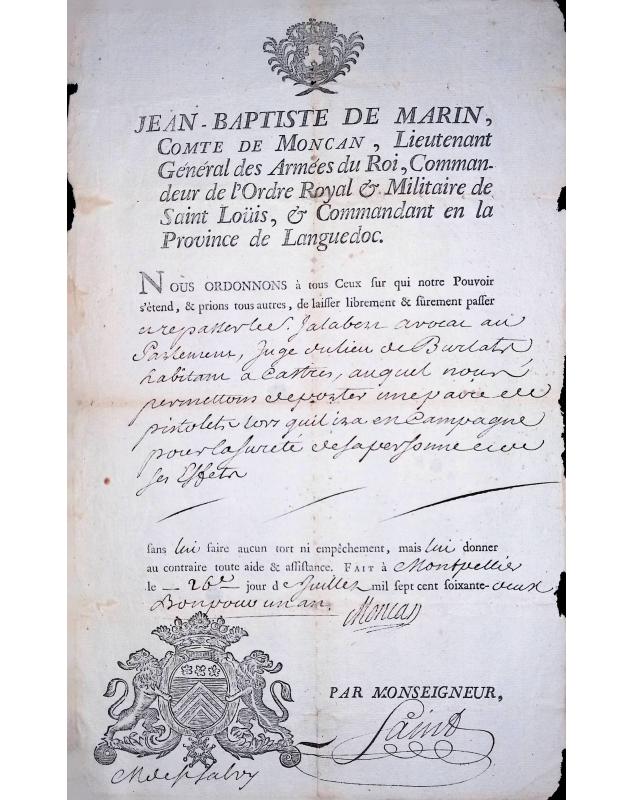 JEAN-BAPTISTE DE MARIN,
COMTE DE MONCAN, Lieutenant
Général des Armées du Roi, Comman-
deur de l'Ordre Royal & Militaire de
Saint Loüis, & Commandant en la
Province de Languedoc.
NOUS ORDONNONS à tous Ceux sur qui notre Pouvoir
s'étend, & prions tous autres, de laisser librement & sûrement passer
et repasser le S. Jalabert avocat au
Parlement, Juge du lieu de Burlats,
habitant a Castres, auquel nous
permettons de porter une paire de
pistolets lors quil ira en Campagne
pour la sureté de sa personne et de
ses Effets
sans lui faire aucun tort ni empêchement, mais lui donner
au contraire toute aide & assistance. FAIT à Montpellier
le 26e jour de Juillet mil sept cent soixante-deux
Bon pour un an. Moncan
PAR MONSEIGNEUR,